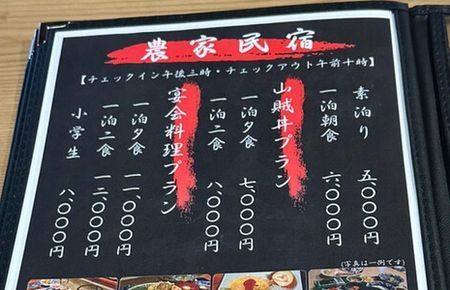 農家民宿
【チェックイン午後三時・チェックアウト午前十時】
素泊り 五、〇〇〇円
一泊朝食 六、〇〇〇円
山賊丼プラン
一泊夕食 七、〇〇〇円
一泊二食 八、〇〇〇円
宴会料理プラン
一泊夕食 一一、〇〇〇円
一泊二食 一二、〇〇〇円
小学生 八、〇〇〇円
(写真は一例です)